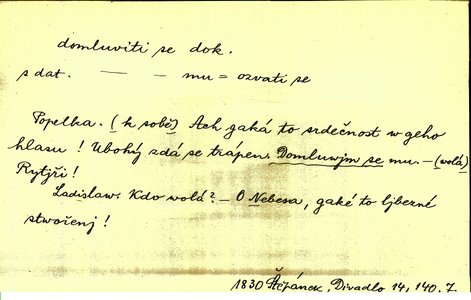 domluviti se dok.
s dat. — – mu = ozvati se
Popelka. (k sobě) Ach gaká to srdečnost w geho
hlasu! Ubohý zdá se trápen. Domluwjm se mu. – (wolá)
Rytjři!
Ladislaw. Kdo wolá? – O Nebesa, gaké to ljbezné
stwořenj!
1830 Štěpánek, Divadlo 14, 140. 7.